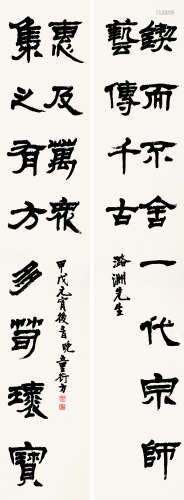 鍥而不舍一代宗師
藝傳千古
潞淵先生
集之有方多荀瓌寶
惠及萬眾
甲戌元宵後二日晚童衍方